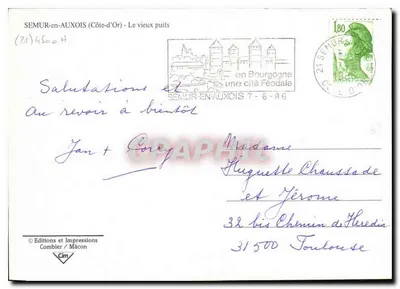 SEMUR-en-AUXOIS (Côte-d'Or) - Le vieux puits
(21)4500 H
1,80
21 SEMUR
en Bourgogne
une cité Féodale
SEMUR-EN-AUXOIS 7-6-86
Salutations et
au revoir à bientôt
Jan + Corey
Madame
Huguette Chaussade
et Jérome
32 bis Chemin de Heredia
31500 Toulouse
© Editions et Impressions
Combier / Mâcon
Cim